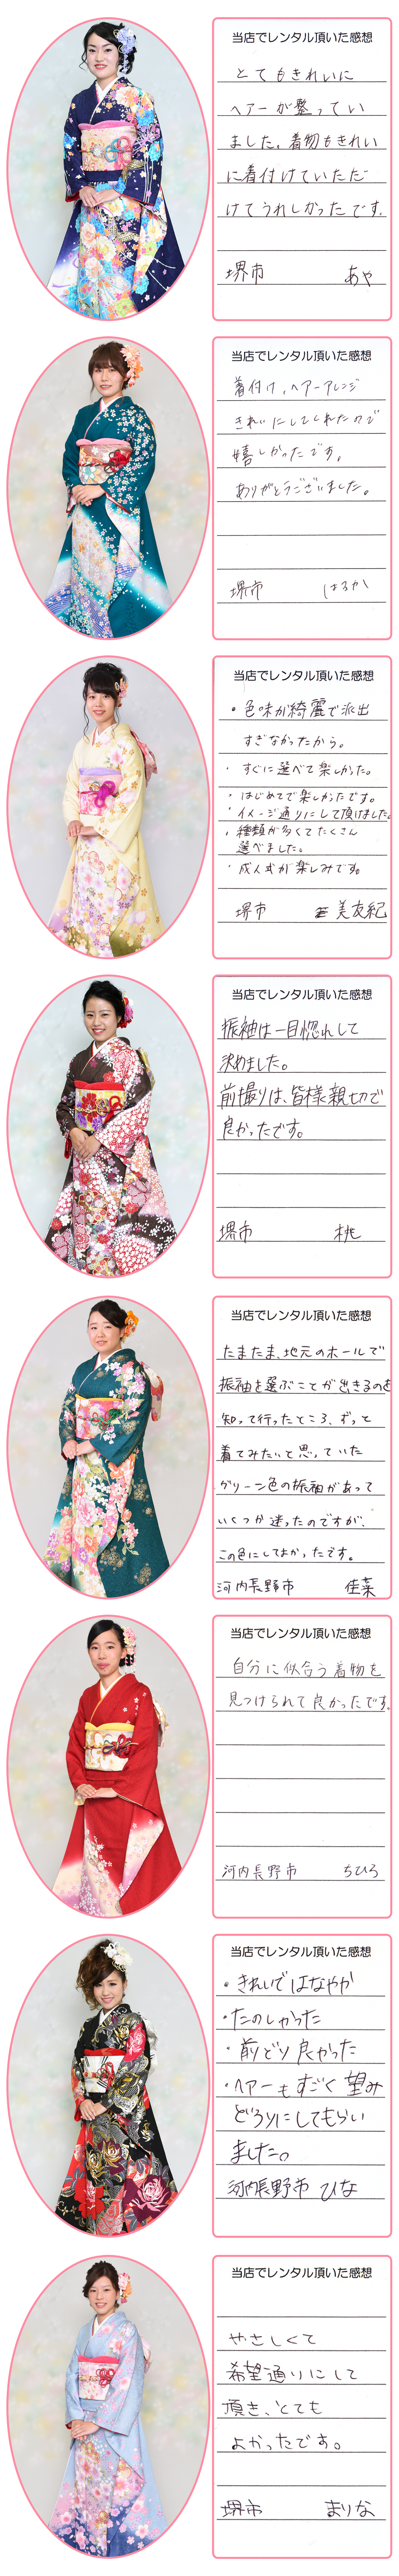 当店でレンタル頂いた感想
とてもきれいに
ヘアーが整ってい
ました。着物もきれい
に着付けていただ
けてうれしかったです。
堺市 あや
当店でレンタル頂いた感想
着付け、ヘアーアレンジ
きれいにしてくれたので
嬉しかったです。
ありがとうございました。
堺市 はるか
当店でレンタル頂いた感想
・色味が綺麗で派出
すぎなかったから。
・すぐに選べて楽しかった。
・はじめてで楽しかったです。
・イメージ通りにして頂けました。
・種類が多くてたくさん
選べました。
・成人式が楽しみです。
堺市 美友紀
当店でレンタル頂いた感想
振袖は一目惚れして
決めました。
前撮りは、皆様親切で
良かったです。
堺市 桃
当店でレンタル頂いた感想
たまたま、地元のホールで
振袖を選ぶことが出きるのを
知って行ったところ、ずっと
着てみたいと思っていた
グリーン色の振袖があって
いくつか迷ったのですが、
この色にしてよかったです。
河内長野市 佳菜
当店でレンタル頂いた感想
自分に似合う着物を
見つけられて良かったです。
河内長野市 ちひろ
当店でレンタル頂いた感想
・きれいではなやか
・たのしかった
・前どり良かった
・ヘアーもすごく望み
どうりにしてもらい
ました。
河内長野市 ひな
当店でレンタル頂いた感想
やさしくて
希望通りにして
頂き、とても
よかったです。
堺市 まりな